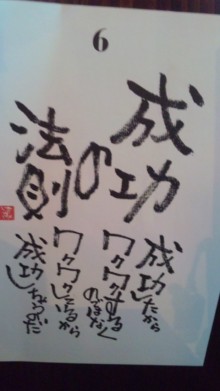 6
成功
の
法則
成功したから
ワクワクする
のではなく
ワクワクしているから
成功しちゃうんだ